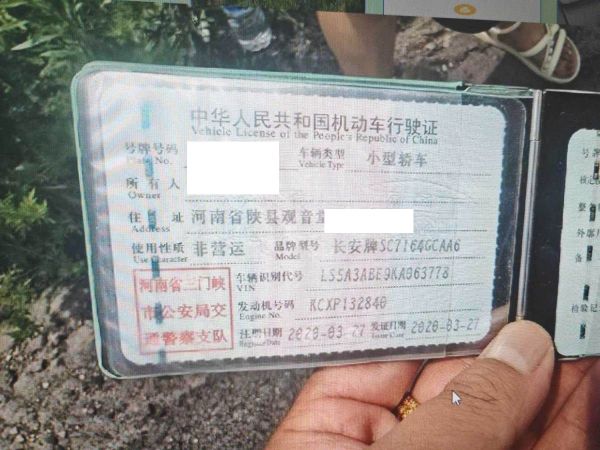 中华人民共和国机动车行驶证
Vehicle License of the People's Republic of China
号牌号码 车辆类型 小型轿车
Plate No. Vehicle Type
所有人
Owner
住址 河南省陕县观音堂
Address
使用性质 非营运 品牌型号 长安牌SC7164GCAA6
Use Character Model
河南省三门峡
市公安局交
通警察支队
车辆识别代号 LS5A3ABE9KA963778
VIN
发动机号码 KCXP132840
Engine No.
注册日期 2020-03-27 发证日期 2020-03-27
Register Date Issue Date
号牌
备
检验记